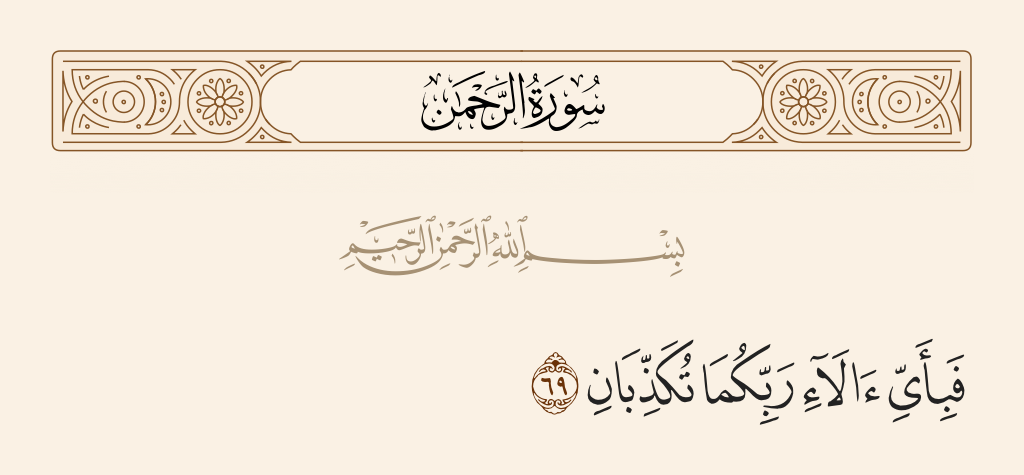 سُورَةُ الرَّحْمَٰن
بِسْمِ ٱللَّهِ ٱلرَّحْمَٰنِ ٱلرَّحِيمِ
فَبِأَىِّ ءَالَآءِ رَبِّكُمَا تُكَذِّبَانِ ٦٩